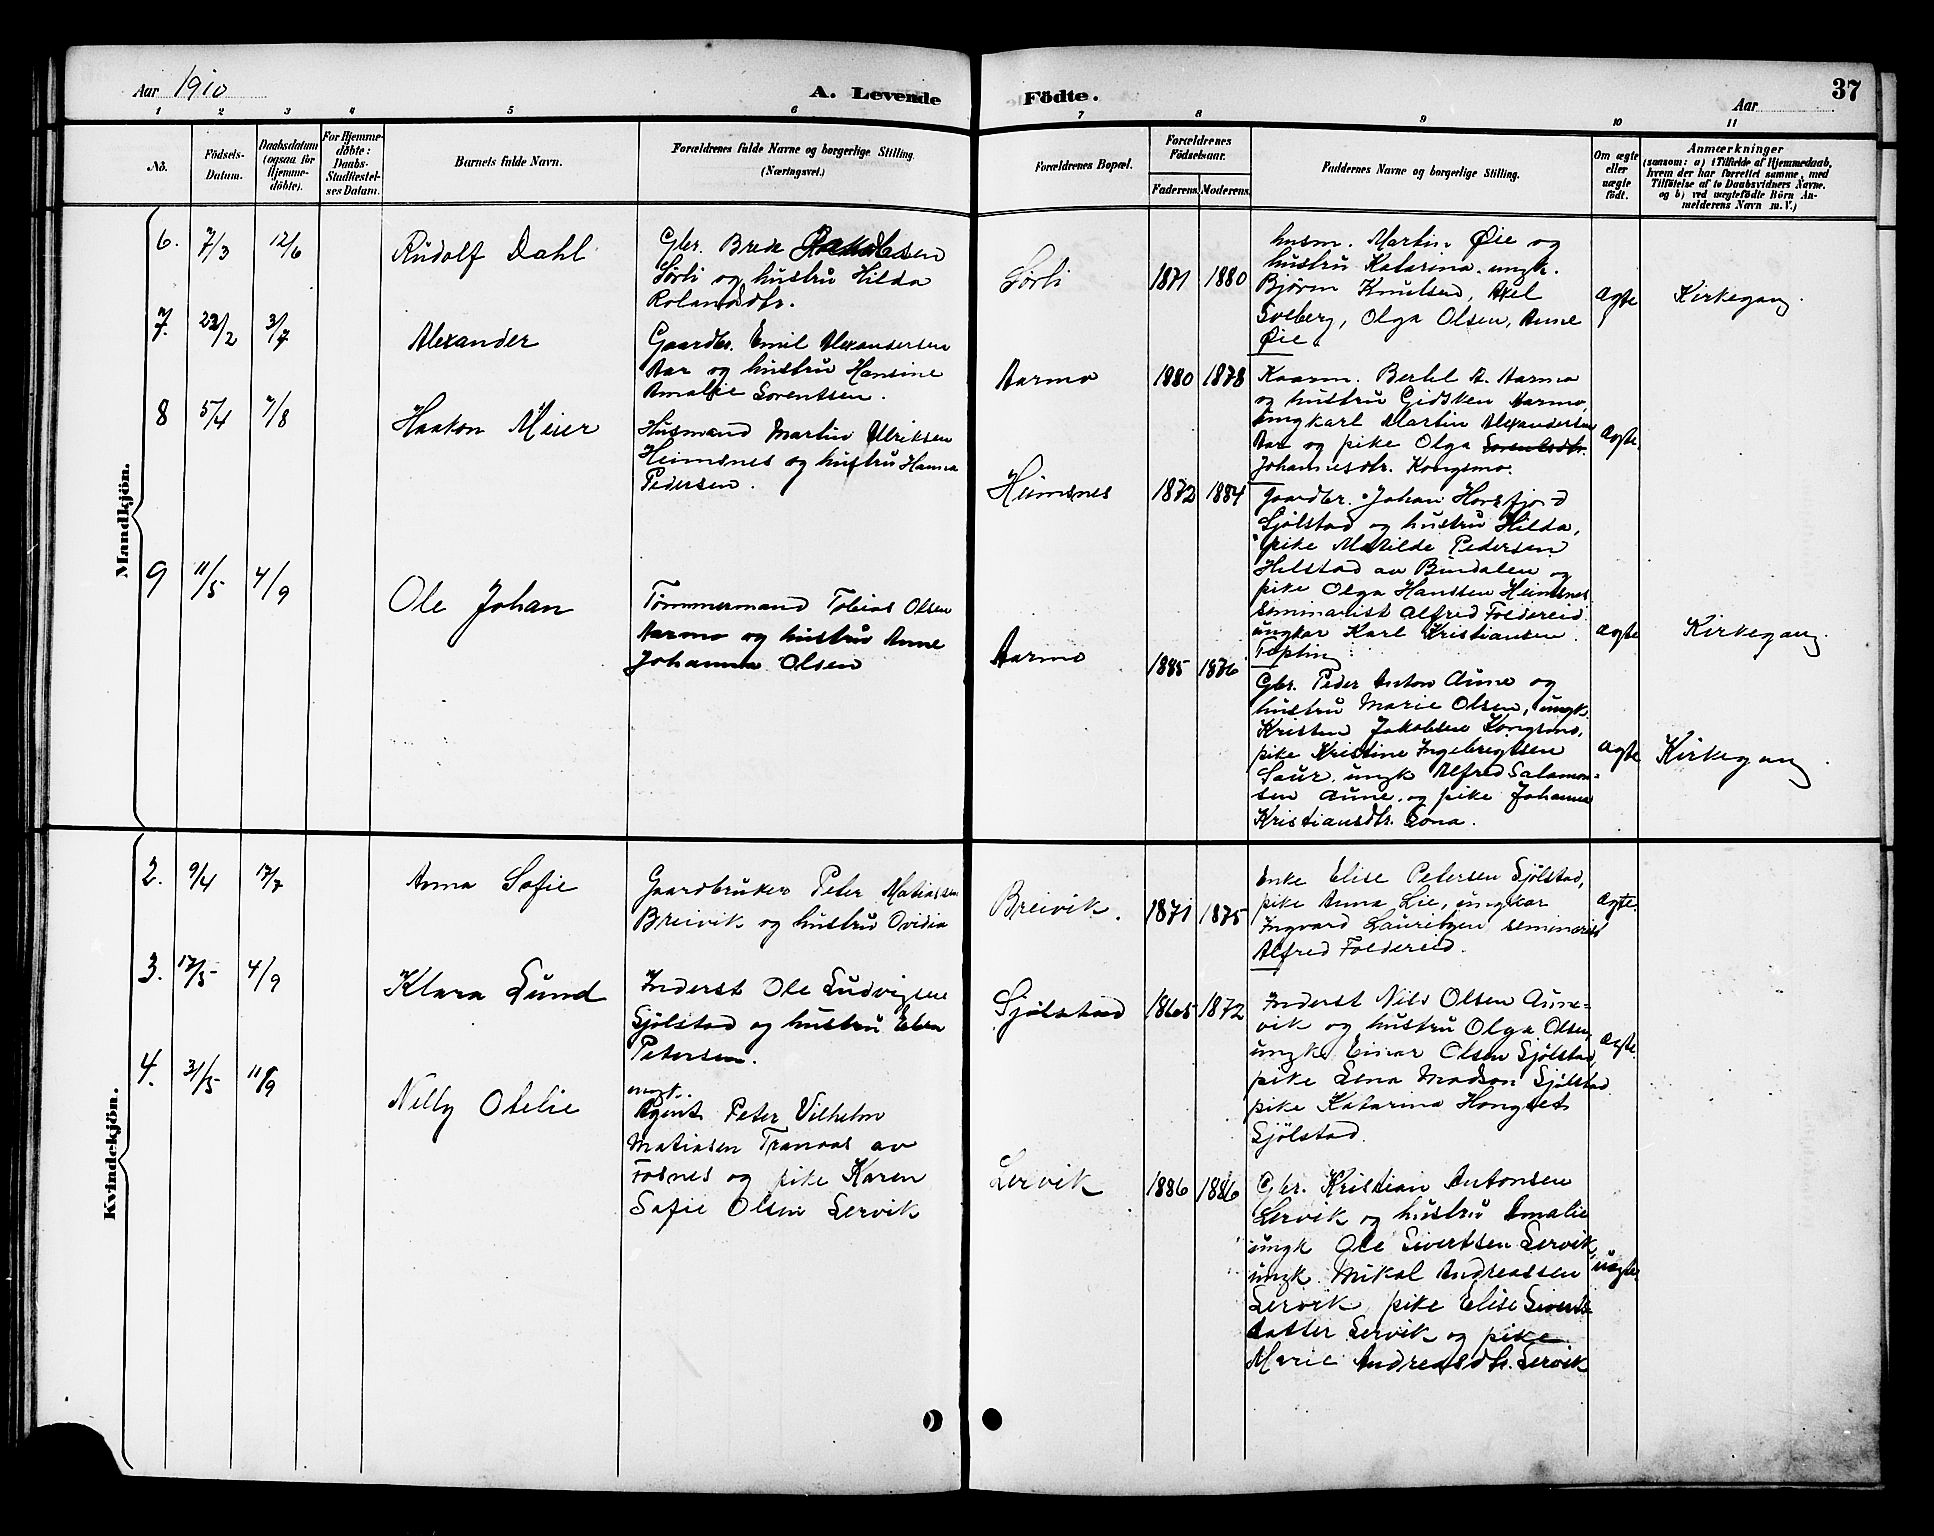 Aar 1910
A. Levende
Födte.
Aar
37
1 2 3 4 5 6 7 8 9 10 11
No.
Födsels-
Datum.
Daabsdatum
(ogsaa för
Hjemme-
döbte).
For Hjemme-
döbte:
Daabs-
Stadfæstel-
ses Datum.
Barnets fulde Navn.
Forældrenes fulde Navne og borgerlige Stilling.
(Næringsvei.)
Forældrenes Bopæl.
Forældrenes
Födselsaar.
Faderens. Moderens.
Faddernes Navne og borgerlige Stilling.
Om ægte
eller
uægte
födt.
Anmærkninger
(saasom: a) i Tilfælde af Hjemmedaab,
hvem der har forrettet samme, med
Tilföielse af to Daabsvidners Navne.
og b) ved uægtefödte Börn An-
melderens Navn m. V.)
Mandkjön.
6. 7/3 12/6
Rudolf Dahl
Gbr. Brede Jakobsen
Sørli og hustru Hilda
Rolandsdtr.
Sørli
1871 1880
husm. Martin Øie og
hustru Katarina. ungk.
Bjørn Knutsen, Axel
Solberg, Olga Olsen, Anne
Øie.
ægte
Kirkegang.
7. 22/2 3/7
Alexander
Gaardbr. Emil Alexandersen
Aar og hustru Hansine
Amalie Sorentsen.
Aarmo
1880 1878
Kaarm. Bertel A. Aarmo
og hustru Gidsken Aarmo,
ungkarl Martin Alexandersen
Aar og pike Olga Sorentsdtr.
Johannesdtr. Kongsmo.
ægte.
8 5/4 7/8
Haakon Meier
Husmand Martin Ulriksen
Heimsnes og hustru Hanna
Pedersen.
Heimsnes
1872 1884
Gaardbr. Johan Horsfjord
Sjølstad og hustru Hilda,
pike Matilde Pedersen
Helstad av Bindalen og
pike Olga Hanssen Heimsnes
seminarist Alfred Foldereid
ungkar Karl Kristiansen.
Tøpting.
ægte
Kirkegang.
9 11/5 4/9
Ole Johan
Tømmermand Tobias Olsen
Aarmo og hustru Anne
Johanna Olsen
Aarmo
1885 1876
Gbr. Peder Anton Aune og
hustru Marie Olsen, ungk.
Kristen Jakobsen Kongsmo,
pike Kristine Ingebrigtsen
Saur, ungk Alfred Salamon-
sen Aune, og pike Johanna
Kristiansdtr. Gona.
ægte
Kirkegang.
Kvindekjön.
2. 9/4 17/7
Anna Sofie
Gaardbruker Peter Matiassen
Breivik og hustru Ovidia
Breivik.
1871 1875
Enke Elise Petersen Sjølstad,
pike Anna Lie, ungkar
Ingvard Lauritzen seminarist
Alfred Foldereid.
ægte.
3. 17/5 4/9
Klara Lund
Inderst Ole Ludvigsen
Sjølstad og hustru Elen
Petersen.
Sjølstad
1865 1872
Inderst Nils Olsen Aune-
vik og hustru Olga Olsen,
ungk Einar Olsen Sjølstad,
pike Lena Madson Sjølstad
pike Katarina Hongset
Sjølstad.
ægte.
4. 31/5 11/9
Nelly Otelie
ungk.
Agent Peter Vilhelm
Matiasen Tranaas av
Fosnes og pike Karen
Sofie Olsen Lervik
Lervik
1886 1886
Gbr. Kristian Antonsen
Lervik og hustru Amalie
ungk Ole Sivertsen Lervik,
ungk. Mikal Andreassen
Lervik, pike Elise Siverts-
datter Lervik og pike
Marie Andreasdtr. Lervik
uægte